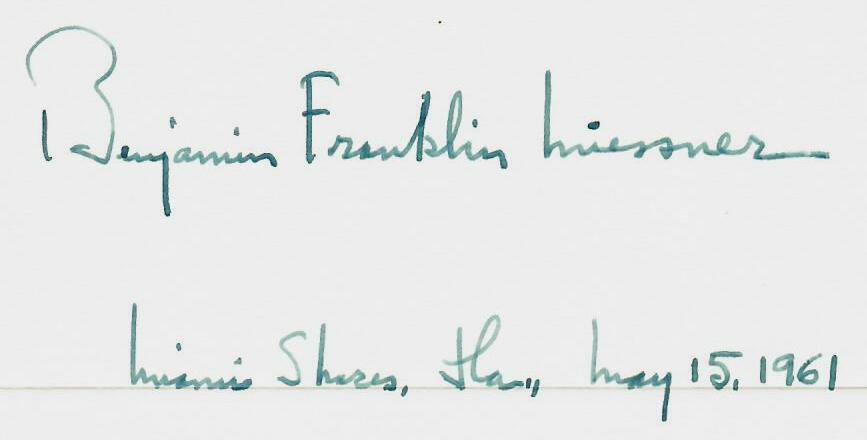 Benjamin Franklin Miessner
Miami Shores, Fla., May 15, 1961